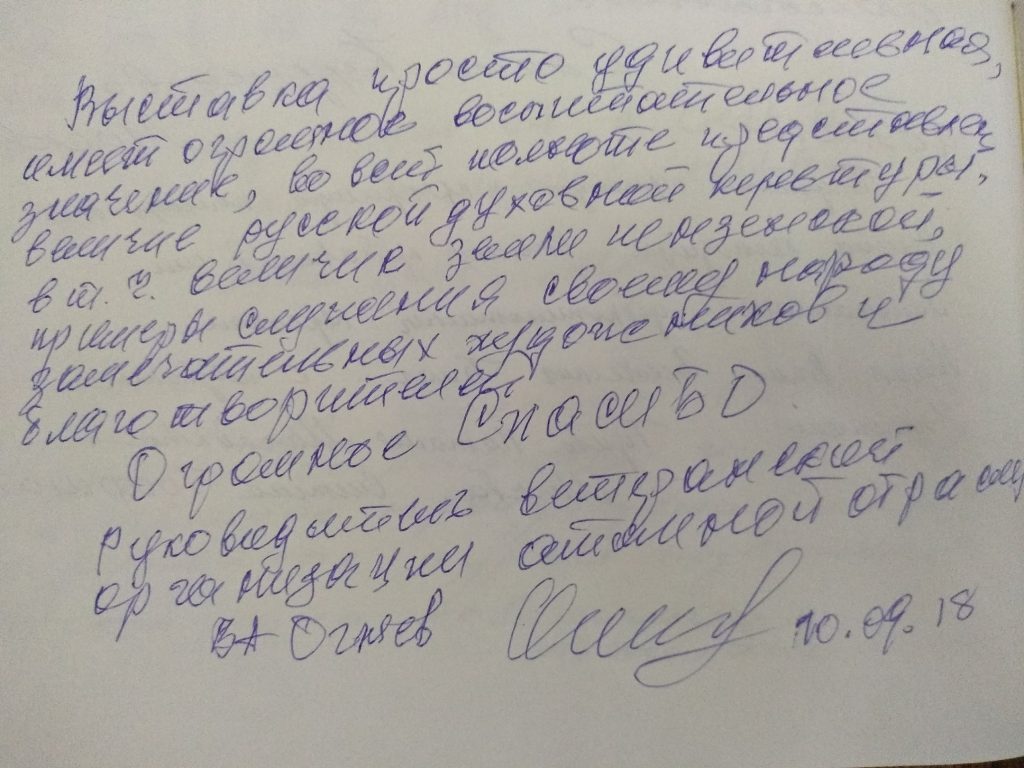 Выставка просто удивительная,
имеет огромное воспитательное
значение, во всей полноте представлен
величие русской духовной культуры,
в т. ч. величие земли пензенской,
примеры служения своему народу
замечательных художников и
благотворителей.
Огромное СПАСИБО
Руководитель ветеранской
организации атомной отрасли
ВА Огнев 10.09.18